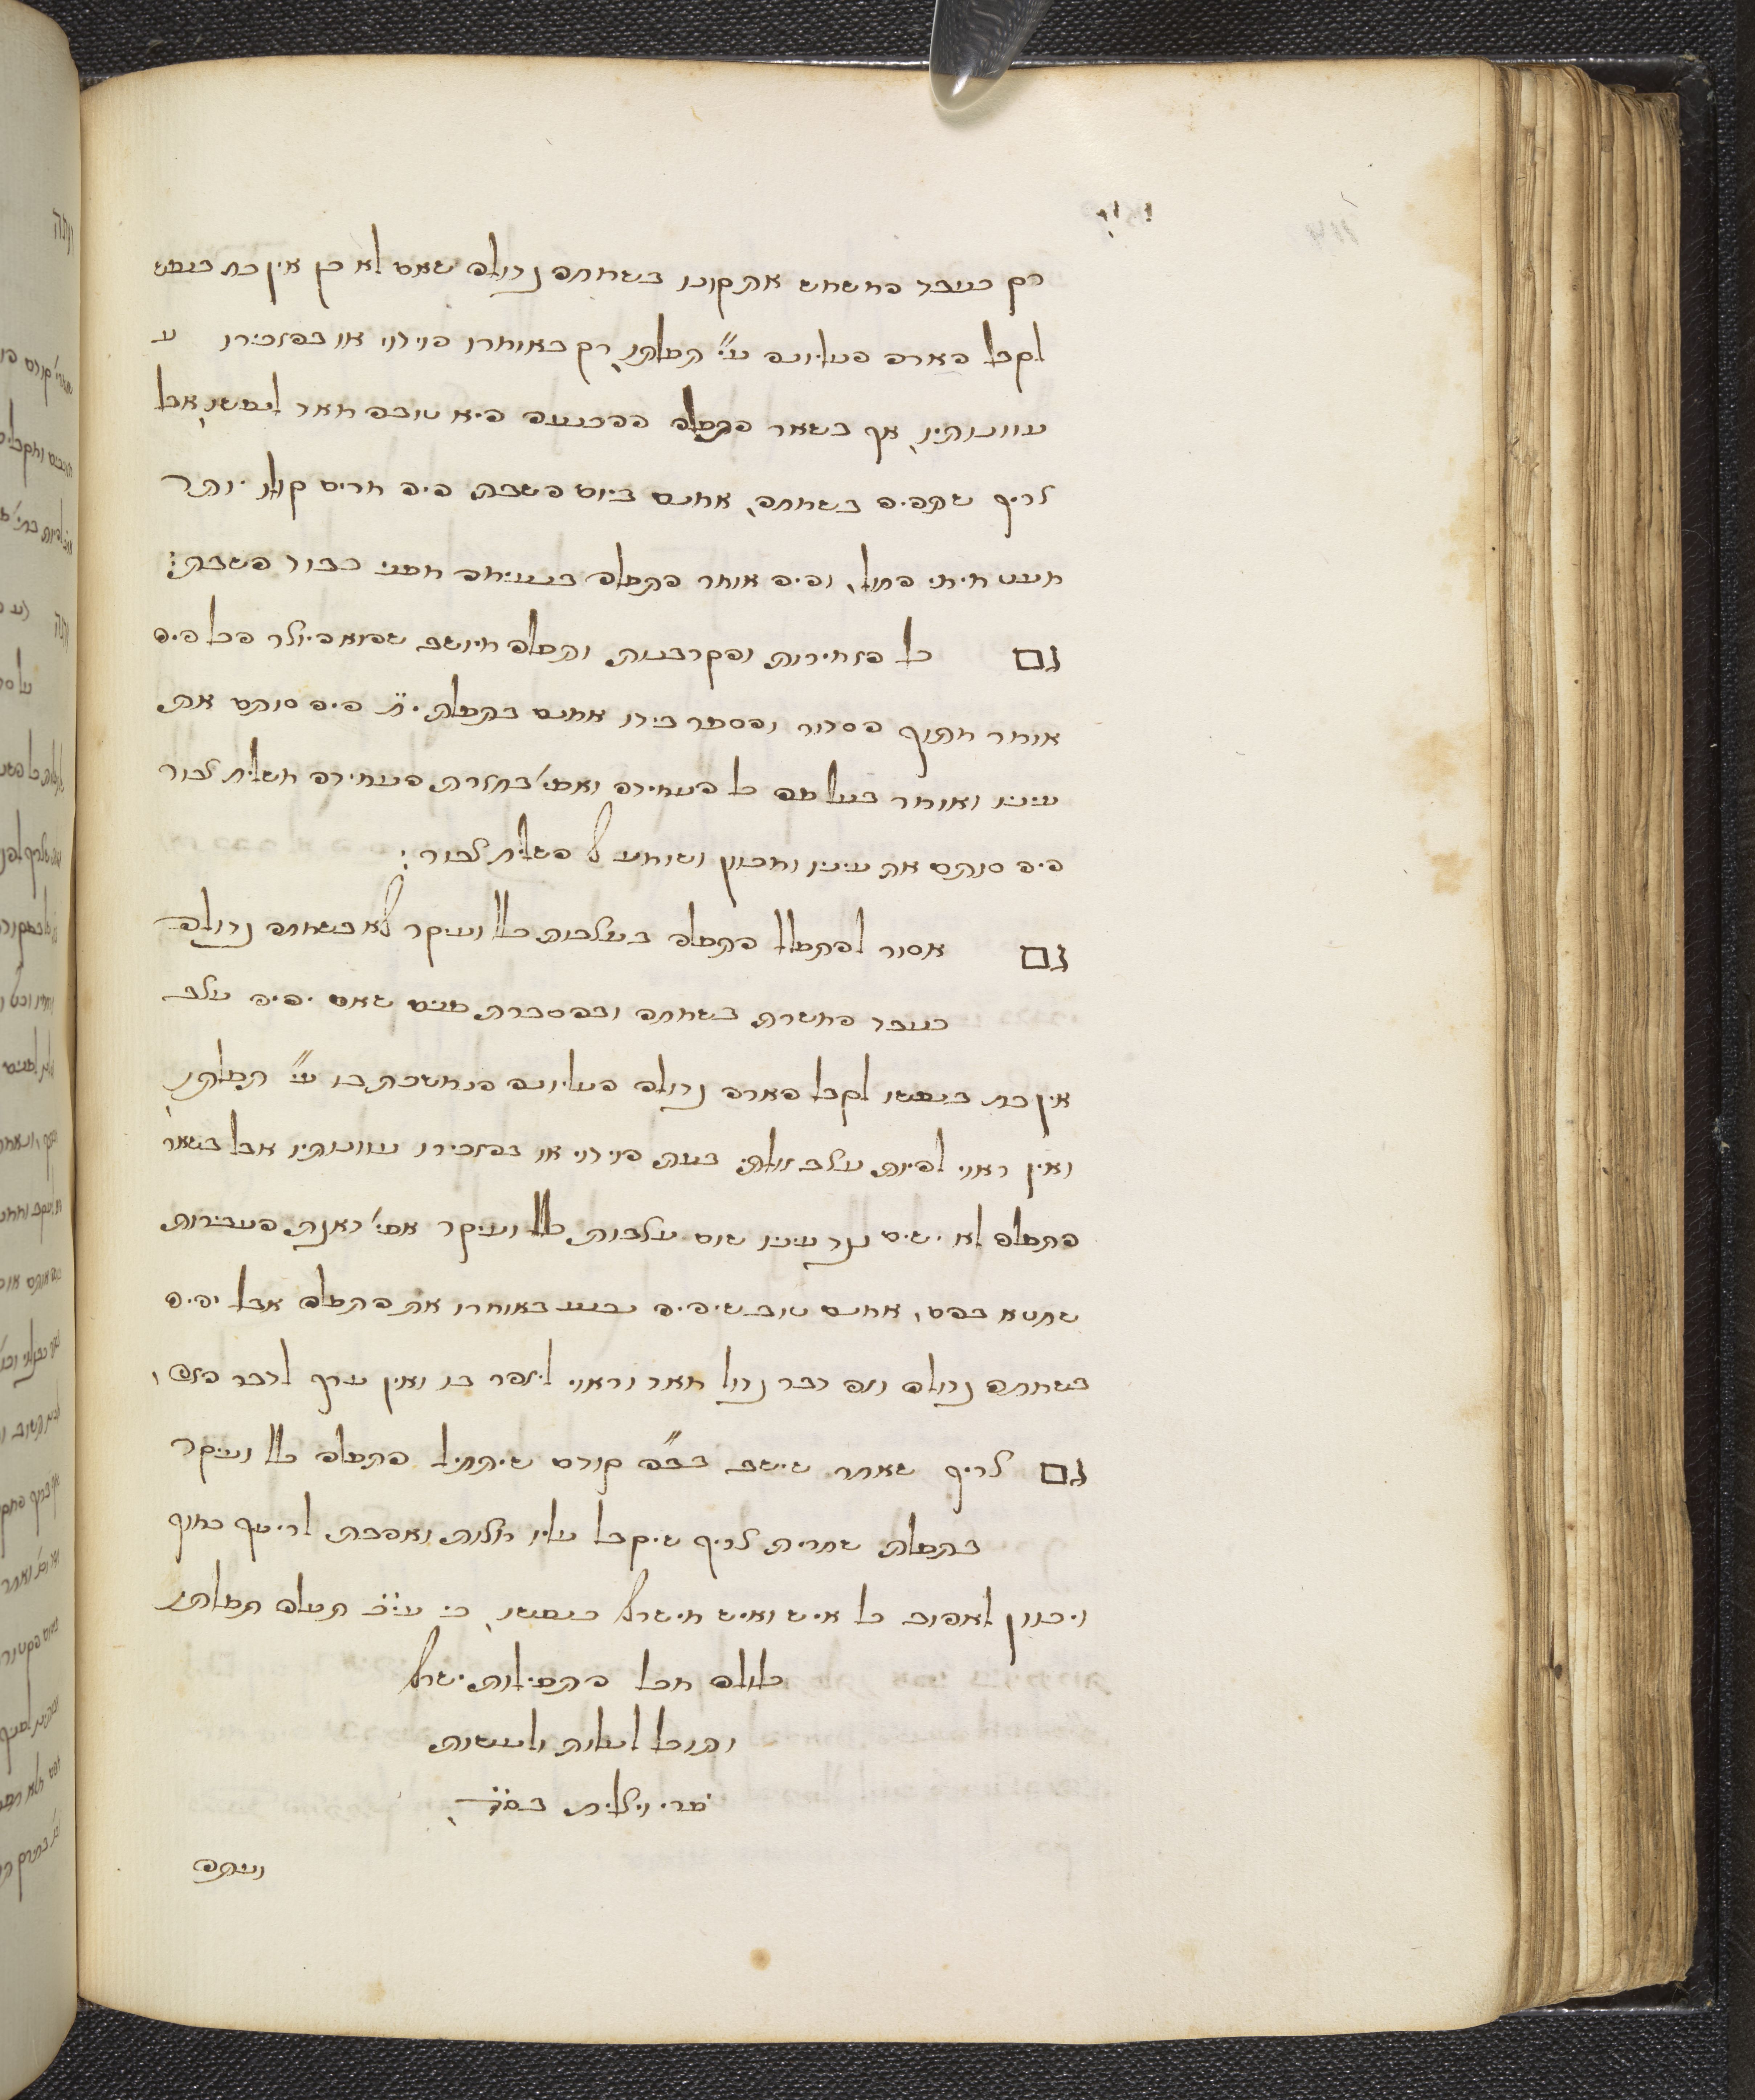 רק כעבד המשמש את קונו בשמחה גדולה שאם לא כן אין כח בנפש
לקבל הארה העליונה ע״י תפלתו, רק באומרו הוידוי או בהזכירו ע
עוונותיו, אף בשאר התפלה ההכנעה היא טובה מאד לנפשו, אבל
צריך שתהיה בשמחה, אמנם ביום השבת, היה מרים קולו יותר
מעט מימי החול, והיה אומר התפלה בנעימה מפני כבוד השבת:
גם כל הזמירות והקרבנות, ותפלה מיושב שהוא היוצר הכל היה
אומר מתוך הסדור והספר בידו אמנם בתפלת י״ח היה סותם את
עיניו ואומר בעל פה כל העמידה ואפי׳ בחזרת העמידה משליח צבור
היה סותם את עיניו ומכוון ושומע ל השליח צבור:
גם אסור להתפלל התפלה בעצבות כלל ועיקר אלא בשמחה גדולה
כעבד המשרת בשמחה ובהסברת פנים שאם יהיה עצב
אין כח בנפשו לקבל הארה גדולה העליונה הנמשכת בו ע״י תפלתו,
ואין ראוי להיות עצב זולתי בעת הוידוי או בהזכירו עוונותיו אבל בשאר
התפלה לא ישים נגד עיניו שום עצבות, כלל ועיקר אפי׳ דאגת העבירות
שחטא בהם, אמנם טוב שיהיה נכנע באומרו את התפלה אבל יהיה
בשמחה גדולה וזה דבר גדול מאד וראוי ליזהר בו ואין ערך לדבר הזה,
גם צריך שאחר שישב בב״ה קודם שיתחיל התפלה כלל ועיקר
בתפלת שחרית צריך שיקבל עליו מצות ואהבת לריעך כמוך
ויכוון לאהוב כל איש ואיש מישראל כנפשו, כי עי״כ תעלה תפלתו
כלולה מכל התפילות ישראל
ותוכל לעלות ולעשות
פרי ויצליח בס״ד,
ועתה